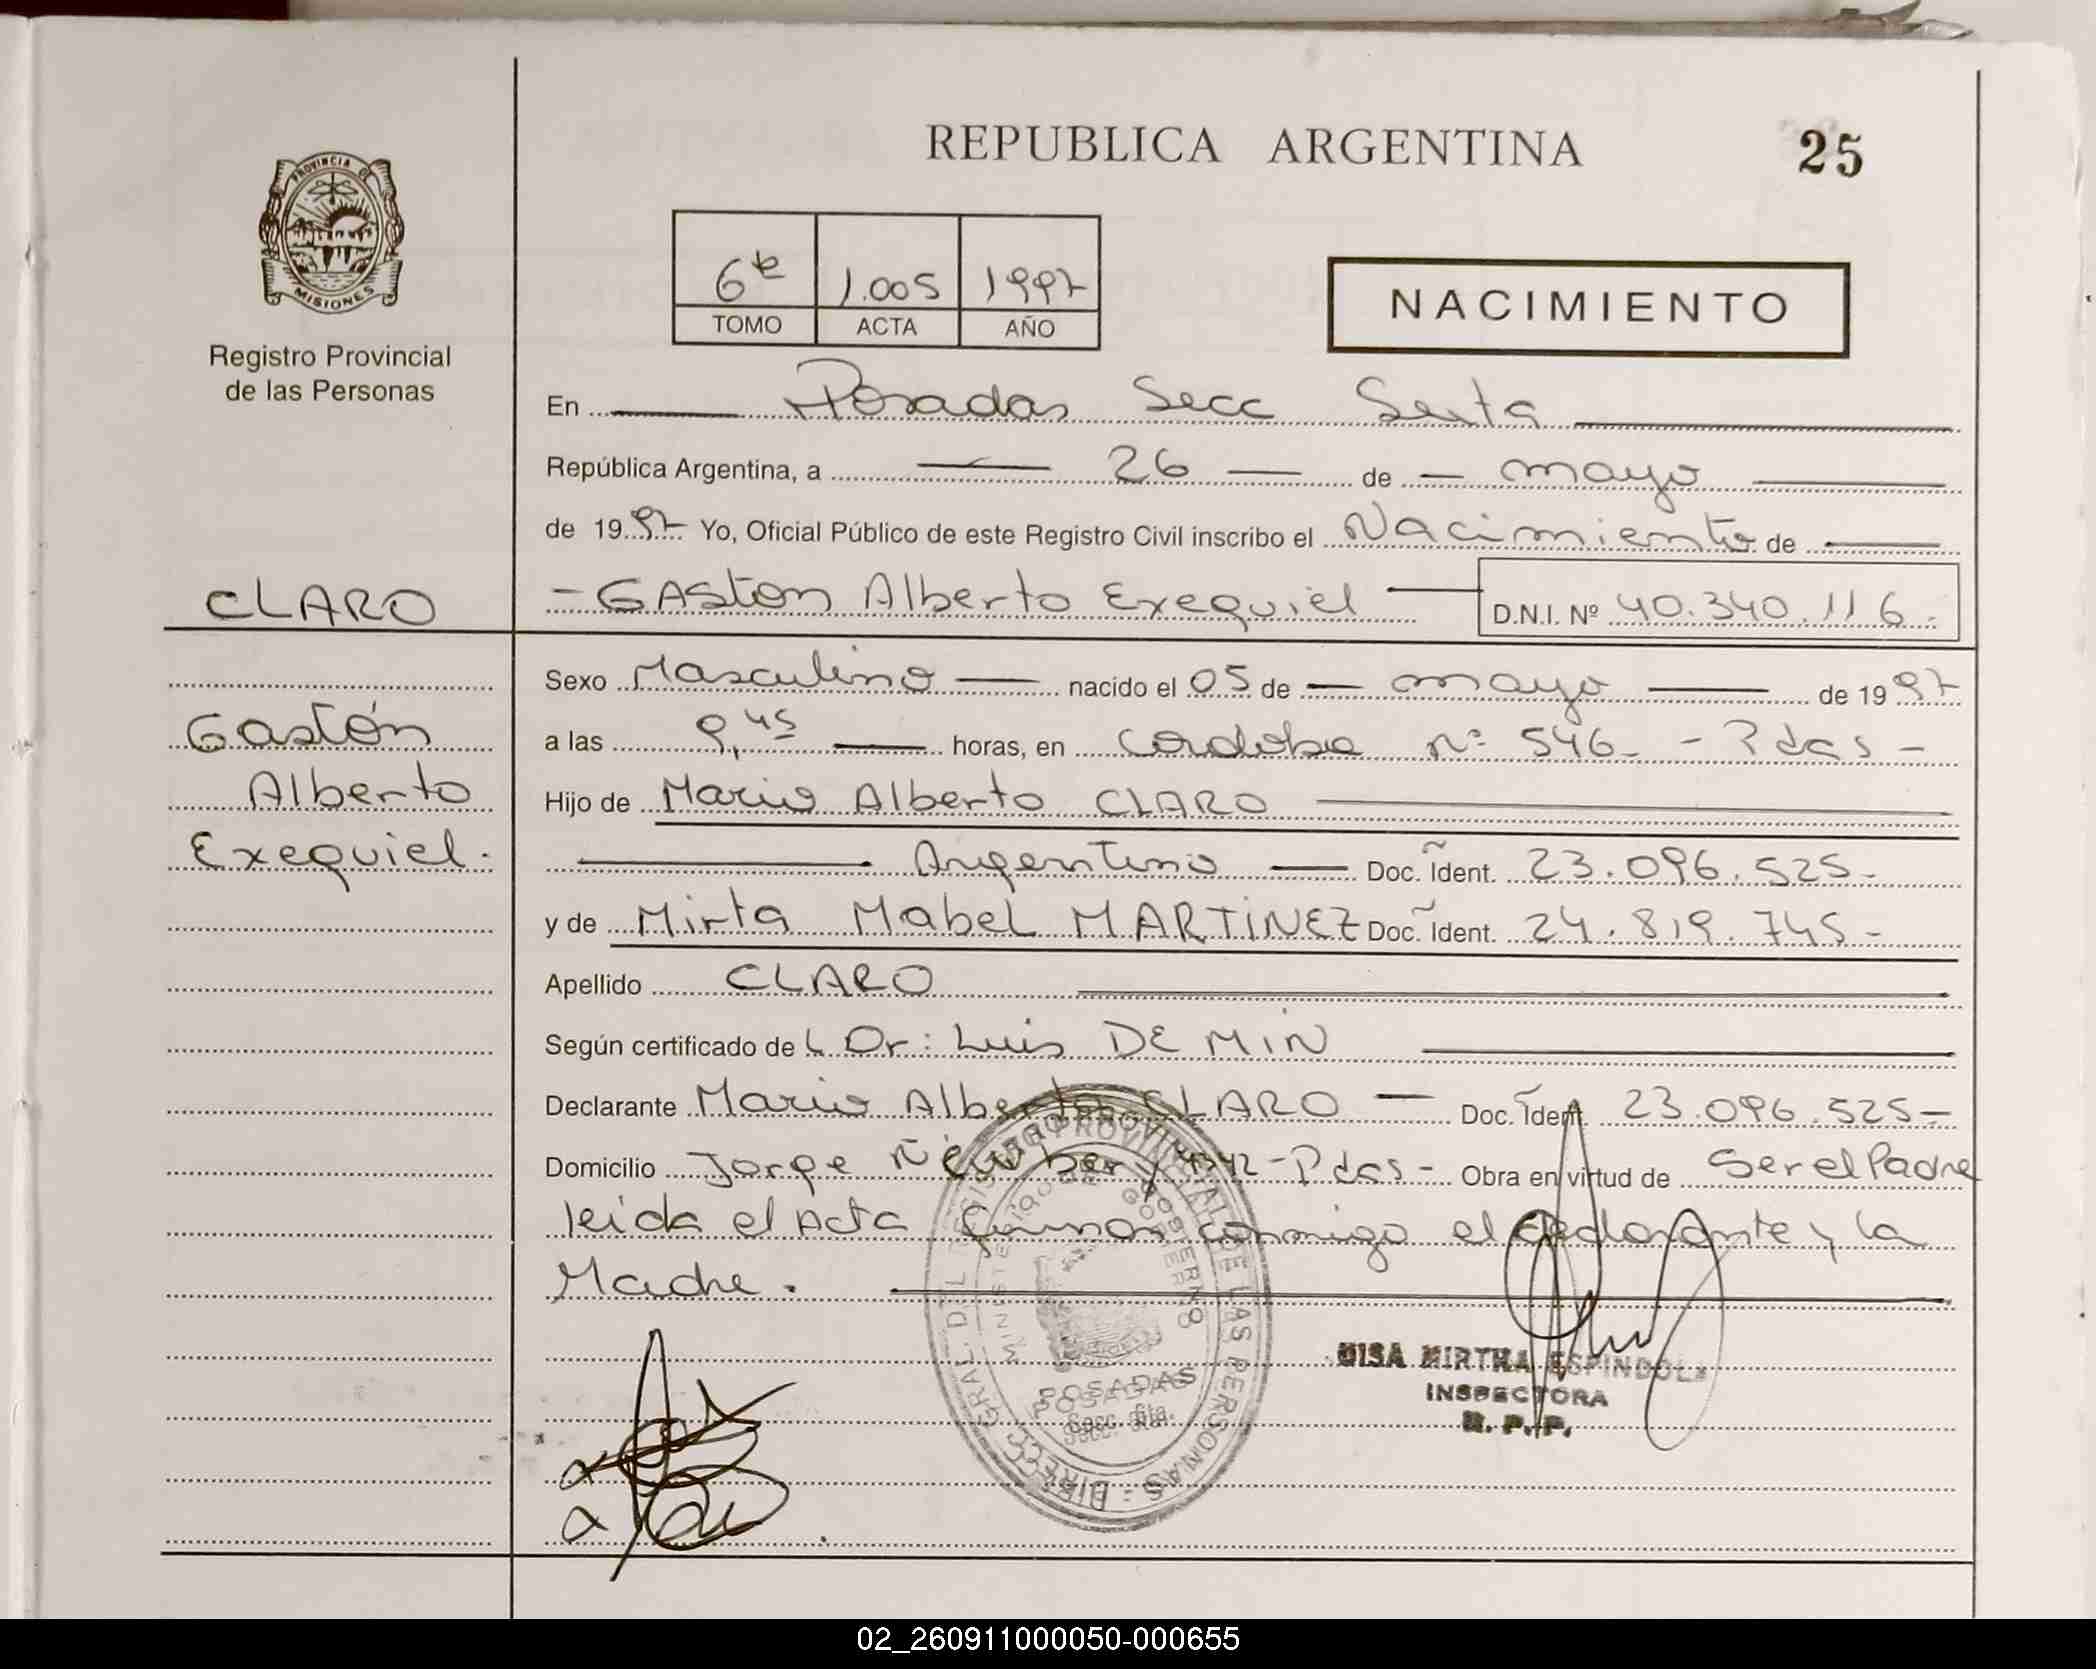 REPUBLICA ARGENTINA 25
PROVINCIA DE
MISIONES
Registro Provincial
de las Personas
6to 1.005 1997
TOMO ACTA AÑO
NACIMIENTO
En Posadas Secc Sexta
República Argentina, a 26 de mayo
de 1997 Yo, Oficial Público de este Registro Civil inscribo el Nacimiento de
CLARO - GAston Alberto Exequiel D.N.I. Nº 40.340.116.-
Sexo Masculino nacido el 05 de mayo de 1997
Gastón a las 9,45 horas, en Cordoba nº 546 - Pdas -
Alberto Hijo de Mario Alberto CLARO
Exequiel. Argentino Doc. Ident. 23.096.525-
y de Mirta Mabel MARTINEZ Doc. Ident. 24.819.745-
Apellido CLARO
Según certificado de Dr: Luis DE MIN
Declarante Mario Alberto CLARO Doc. Ident. 23.096.525-
Domicilio Jorge Newbery - Pdas - Obra en virtud de Ser el Padre
leida el Acta firman conmigo el declarante y la
Madre.
MIRTHA ESPINDOLA
INSPECTORA
R. P. P.
DIRECC. GRAL. DEL REGISTRO PROVINCIAL DE LAS PERSONAS
MINISTERIO DE GOBIERNO
POSADAS
Secc. 6ta.
02_260911000050-000655